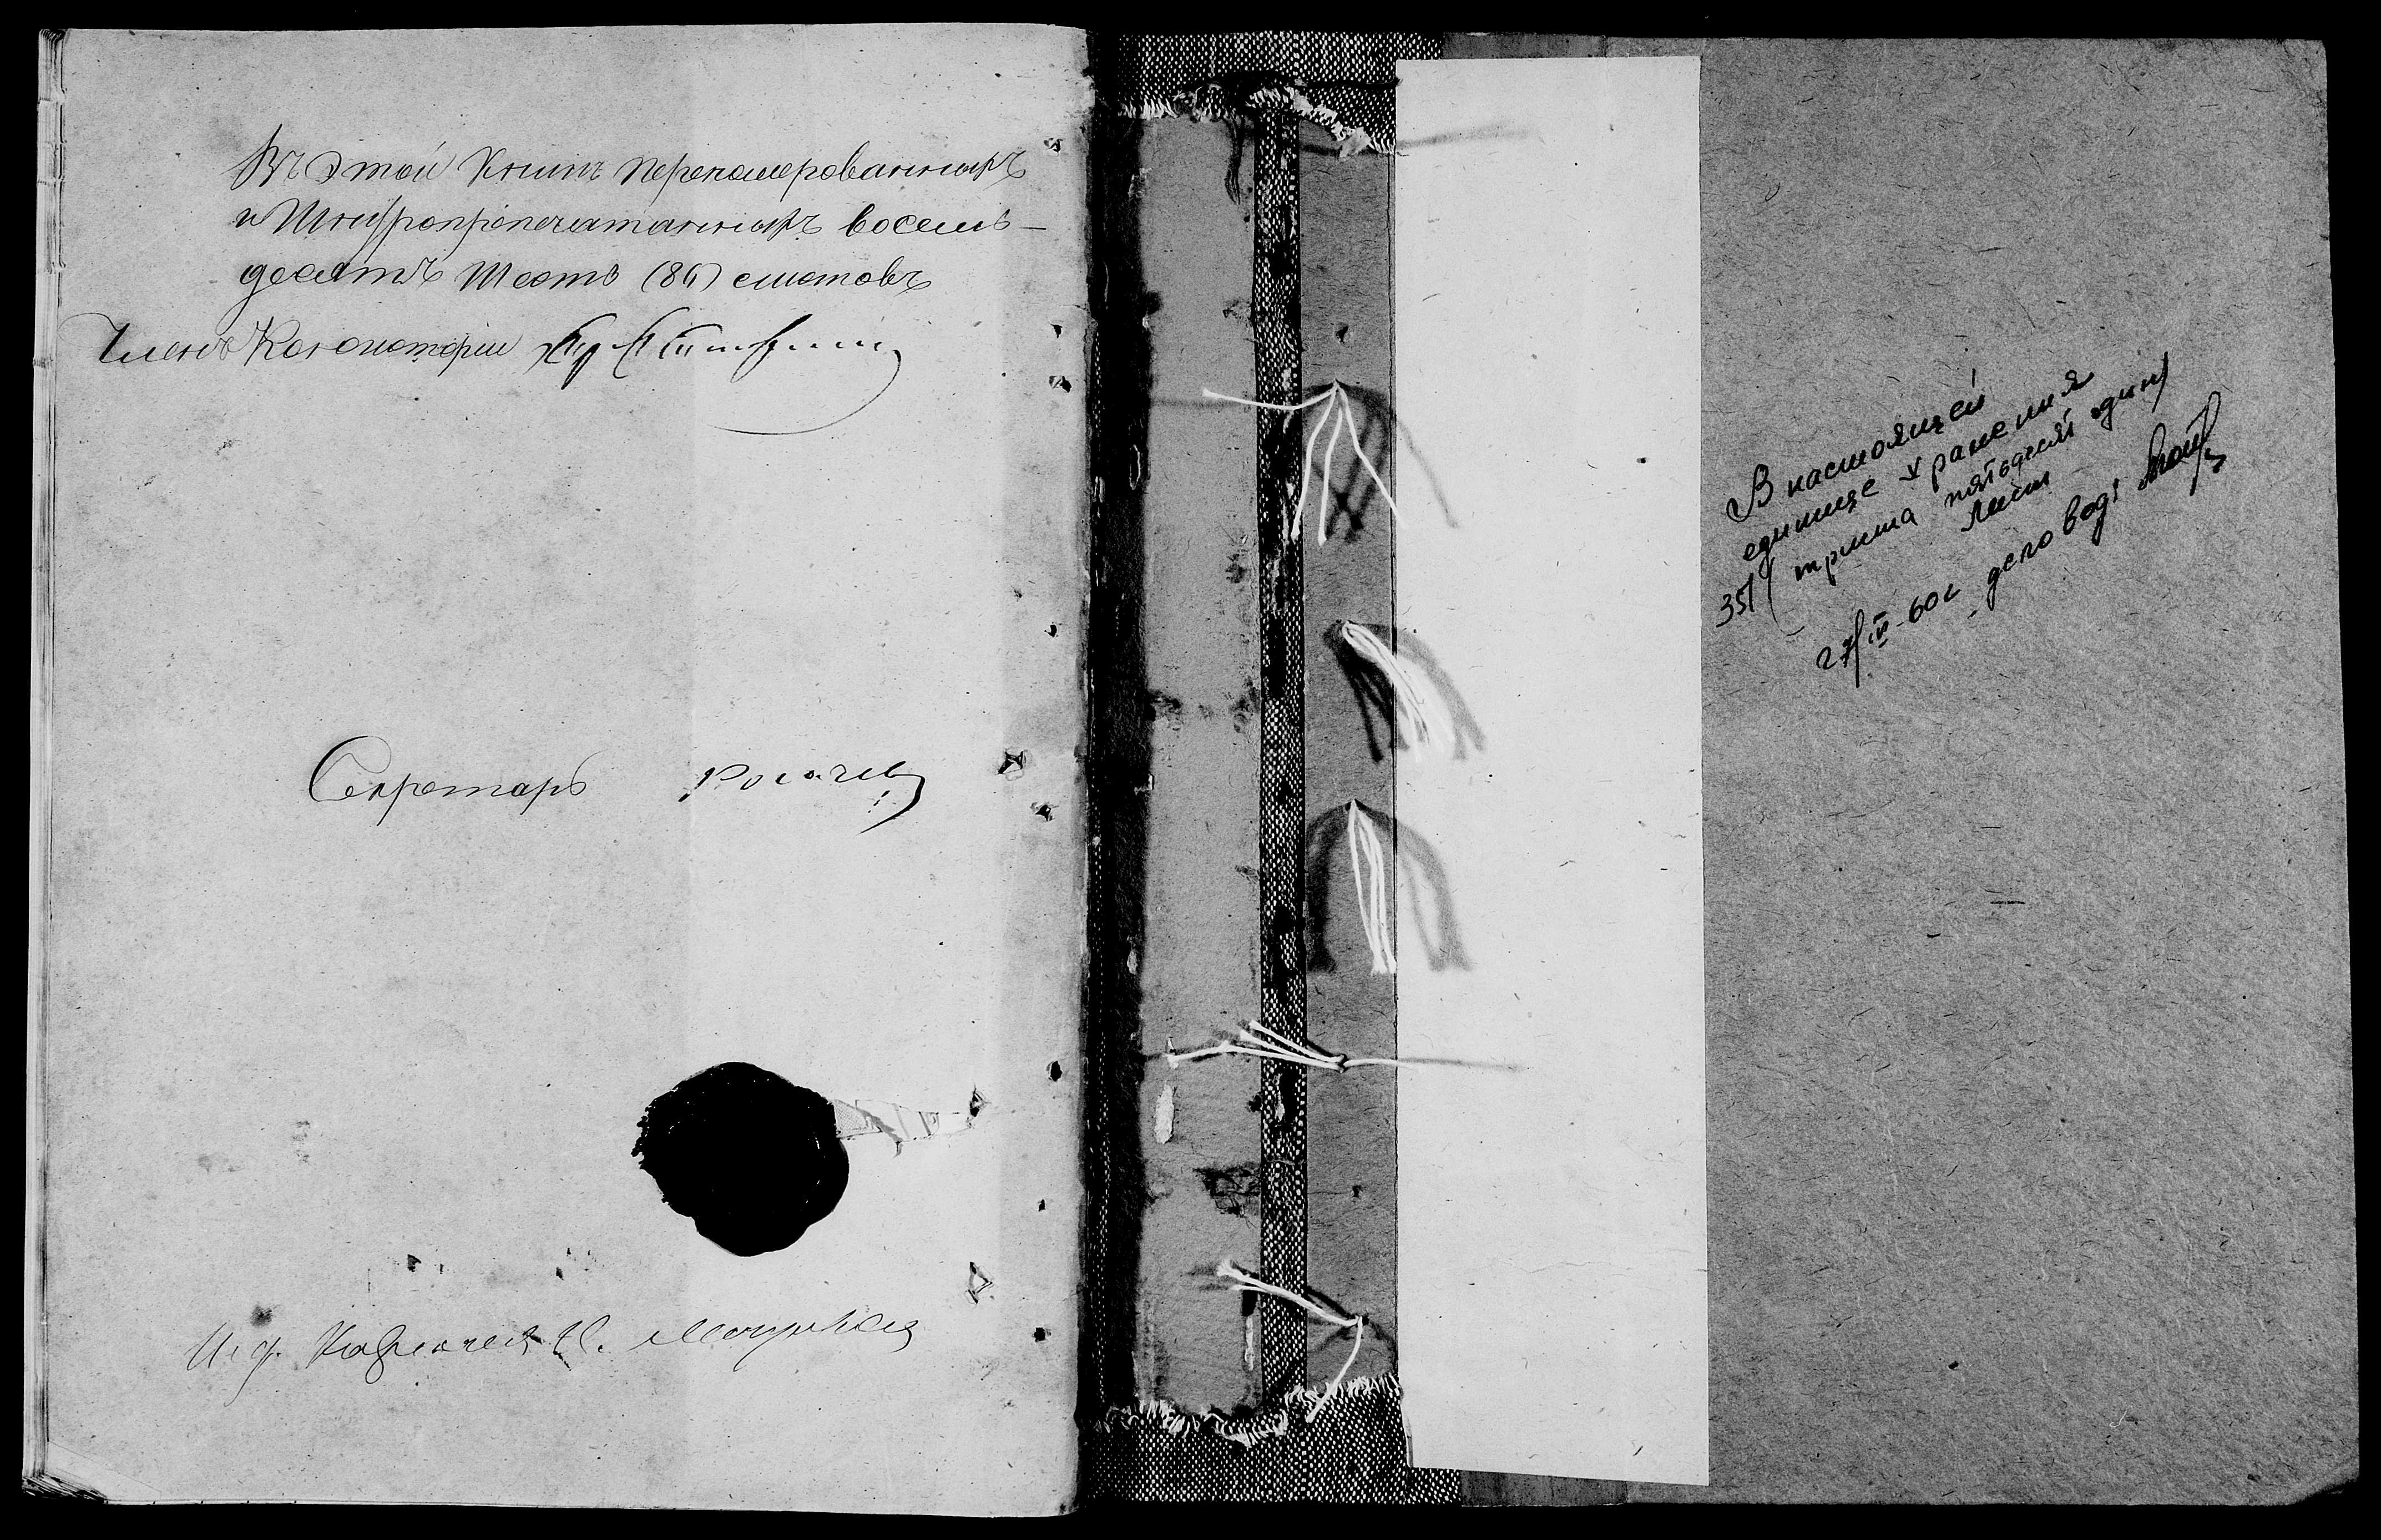 Въ Этой Книгѣ перенамерованныхъ
и Шнуропропечатанныхъ восемь-
десятъ Шесть (86) листовъ
Членъ Консисторіи
Секретарь Рогачев
И. д.
В настоящей
единице хранения
351 (триста пятьдесят один)
лист
27/IV-60г деловод: